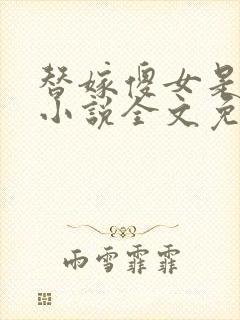 替嫁傻女是
小说全文免
雨雪霏霏